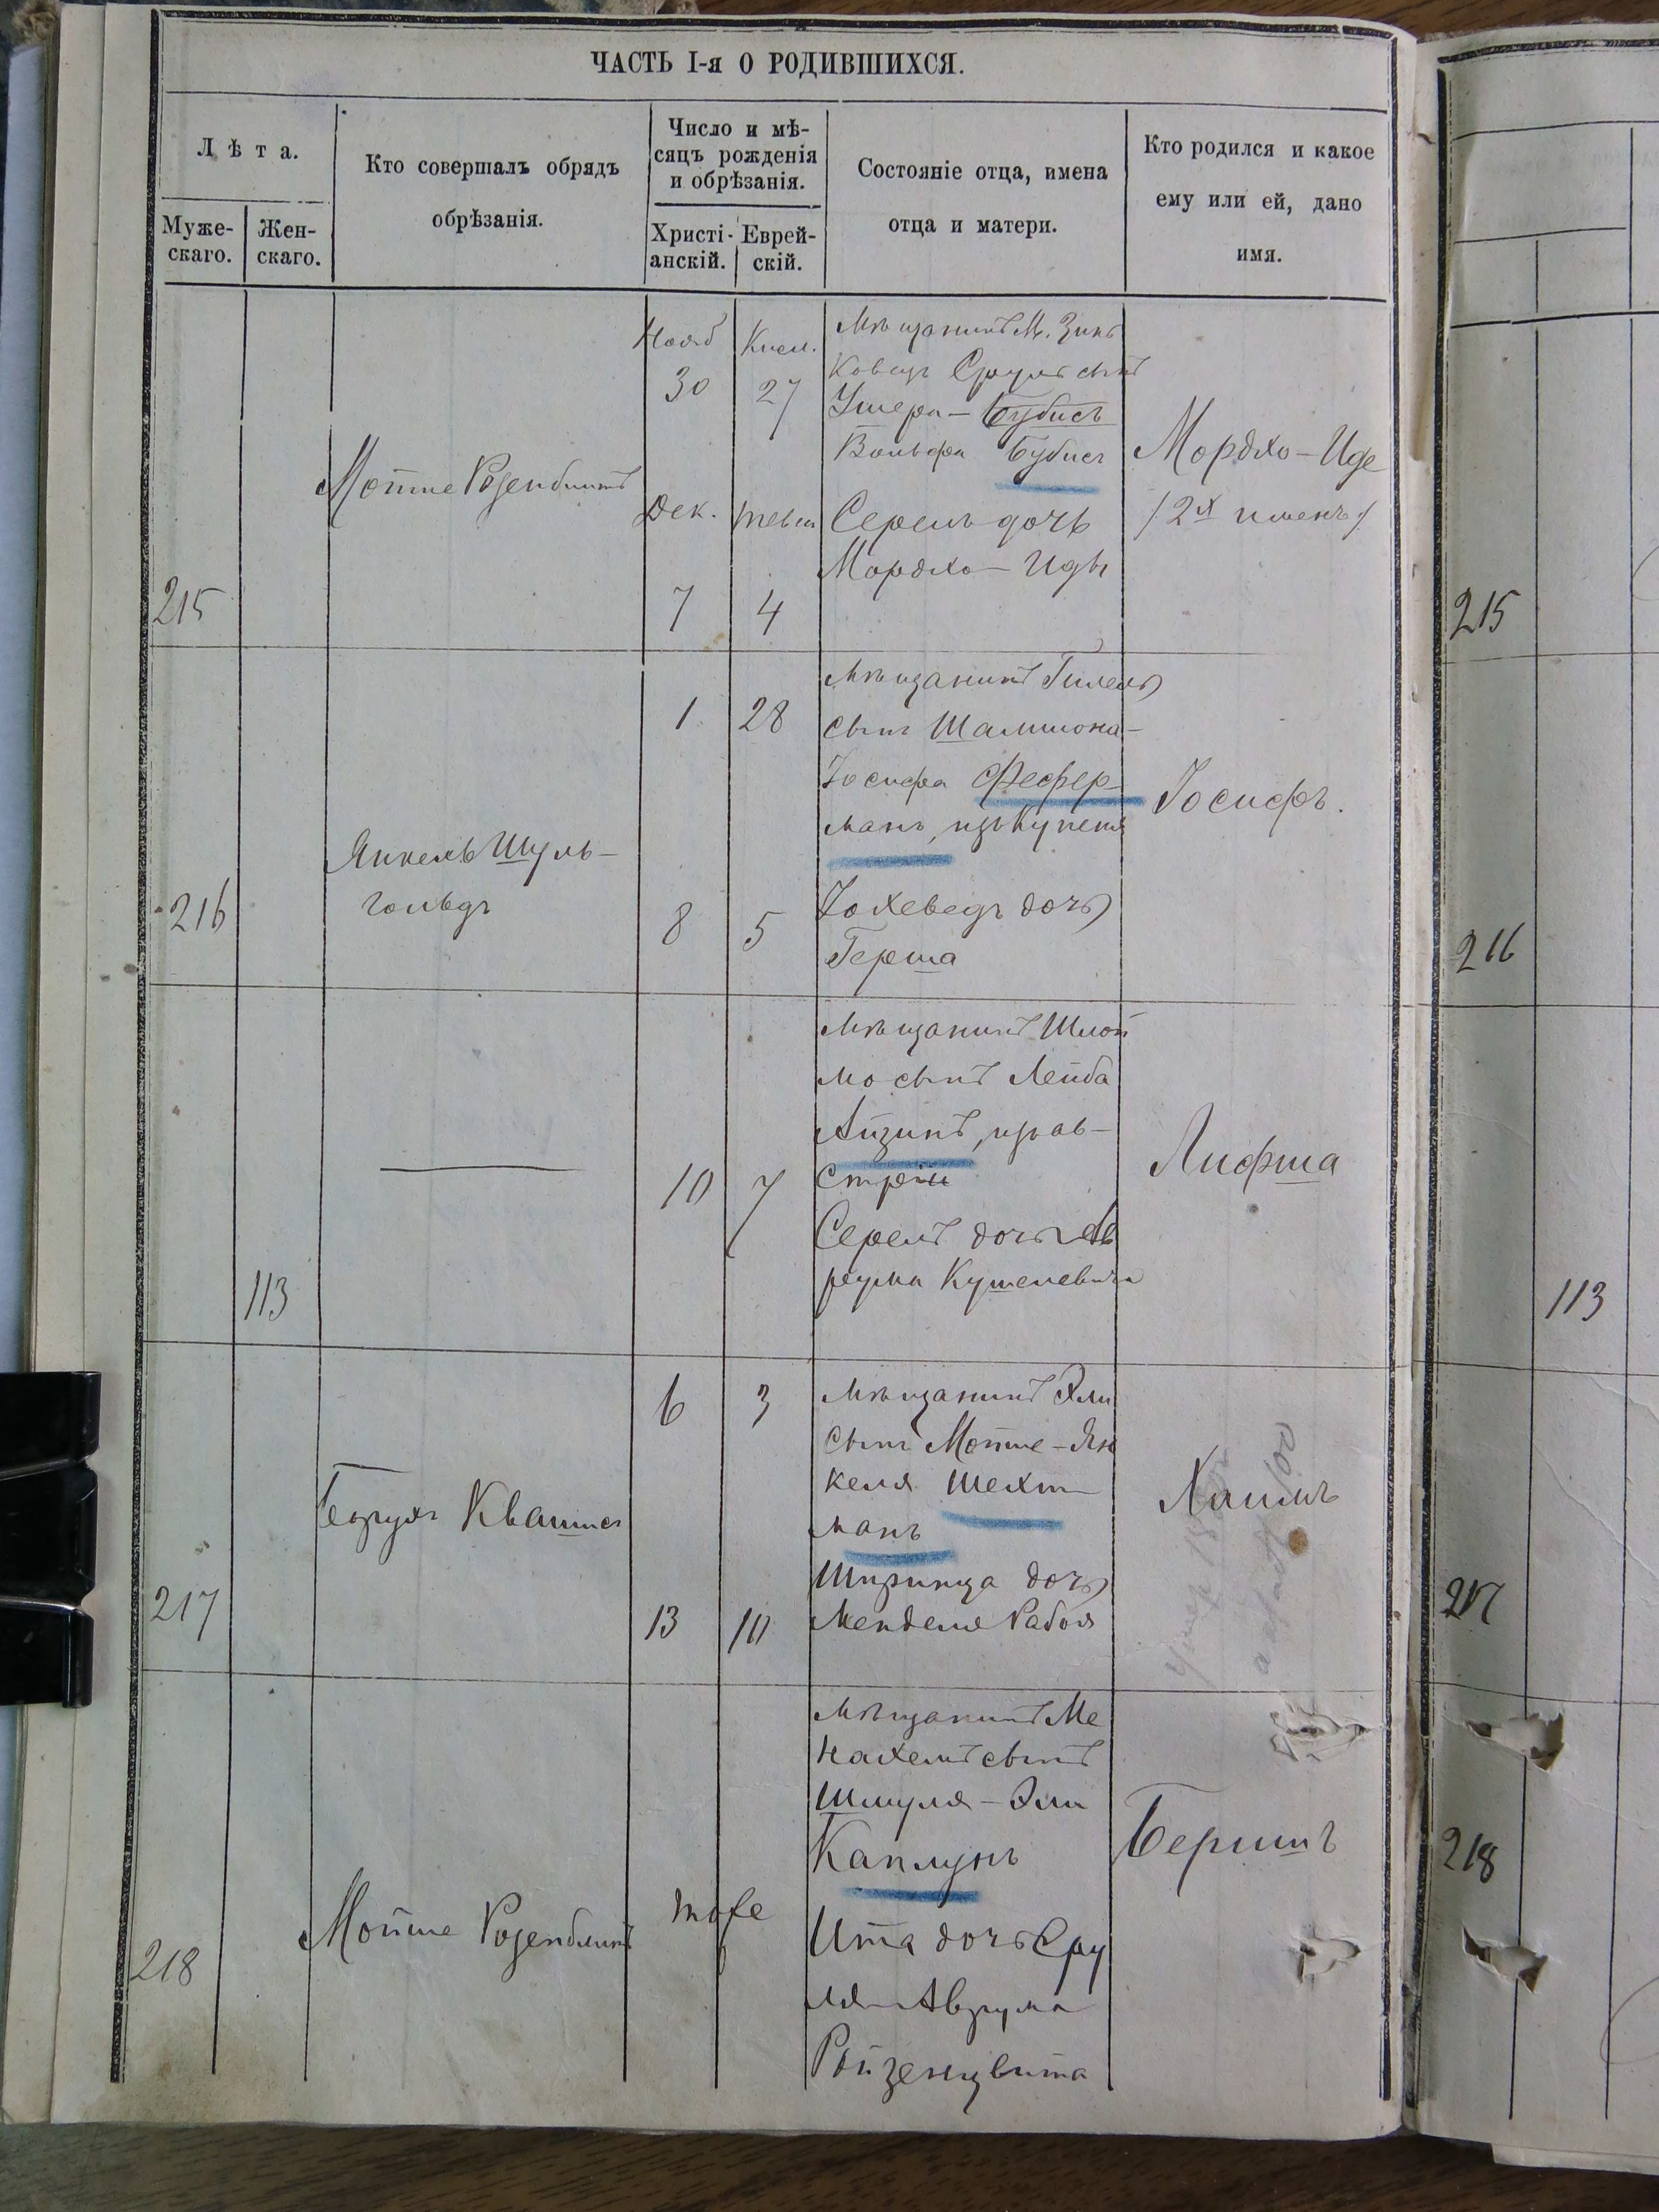 ЧАСТЬ I-я О РОДИВШИХСЯ.
Лѣта.
Муже-
скаго.
Жен-
скаго.
Кто совершалъ обрядъ
обрѣзанія.
Число и мѣ-
сяцъ рожденія
и обрѣзанія.
Христі-
анскій.
Еврей-
скій.
Состояніе отца, имена
отца и матери.
Кто родился и какое
ему или ей, дано
имя.
215
Мотше Розенблитъ
Нояб
30
Дек.
7
Кисл.
27
4
Мѣщанинъ М. Зинь
ковъ Сруль сынъ
Ушера-Бубисъ
Вольфа Бубисъ
Серель дочь
Мордхо-Иды
Мордхо-Иде
/2х именъ/
215
216
Янкель Шуль-
гольдъ
1
8
28
5
Мѣщанинъ Гилель
сынъ Шамшона-
Іосифа Фефер-
манъ, изъ Купеля
Іохеведъ дочь
Герша
Іосифъ.
216
113
10
7
Мѣщанинъ Шлой
мо сынъ Лейба
Айзинъ, изъ Ав-
стріи
Серель дочь Ав
рума Кушелевича
Лифша
113
217
Борухъ Квашисъ
6
13
3
10
Мѣщанинъ Эли
сынъ Мотше-Ян
келя Шехт-
манъ
Шпринца дочь
Менделя Рабоя
Хаимъ
217
218
Мотше Розенблитъ
тоже
Мѣщанинъ Ме
нахемъ сынъ
Шмуля-Эли
Каплунъ
Ита дочь Сру
ля-Аврума
Ройзенцвита
Бершъ
218